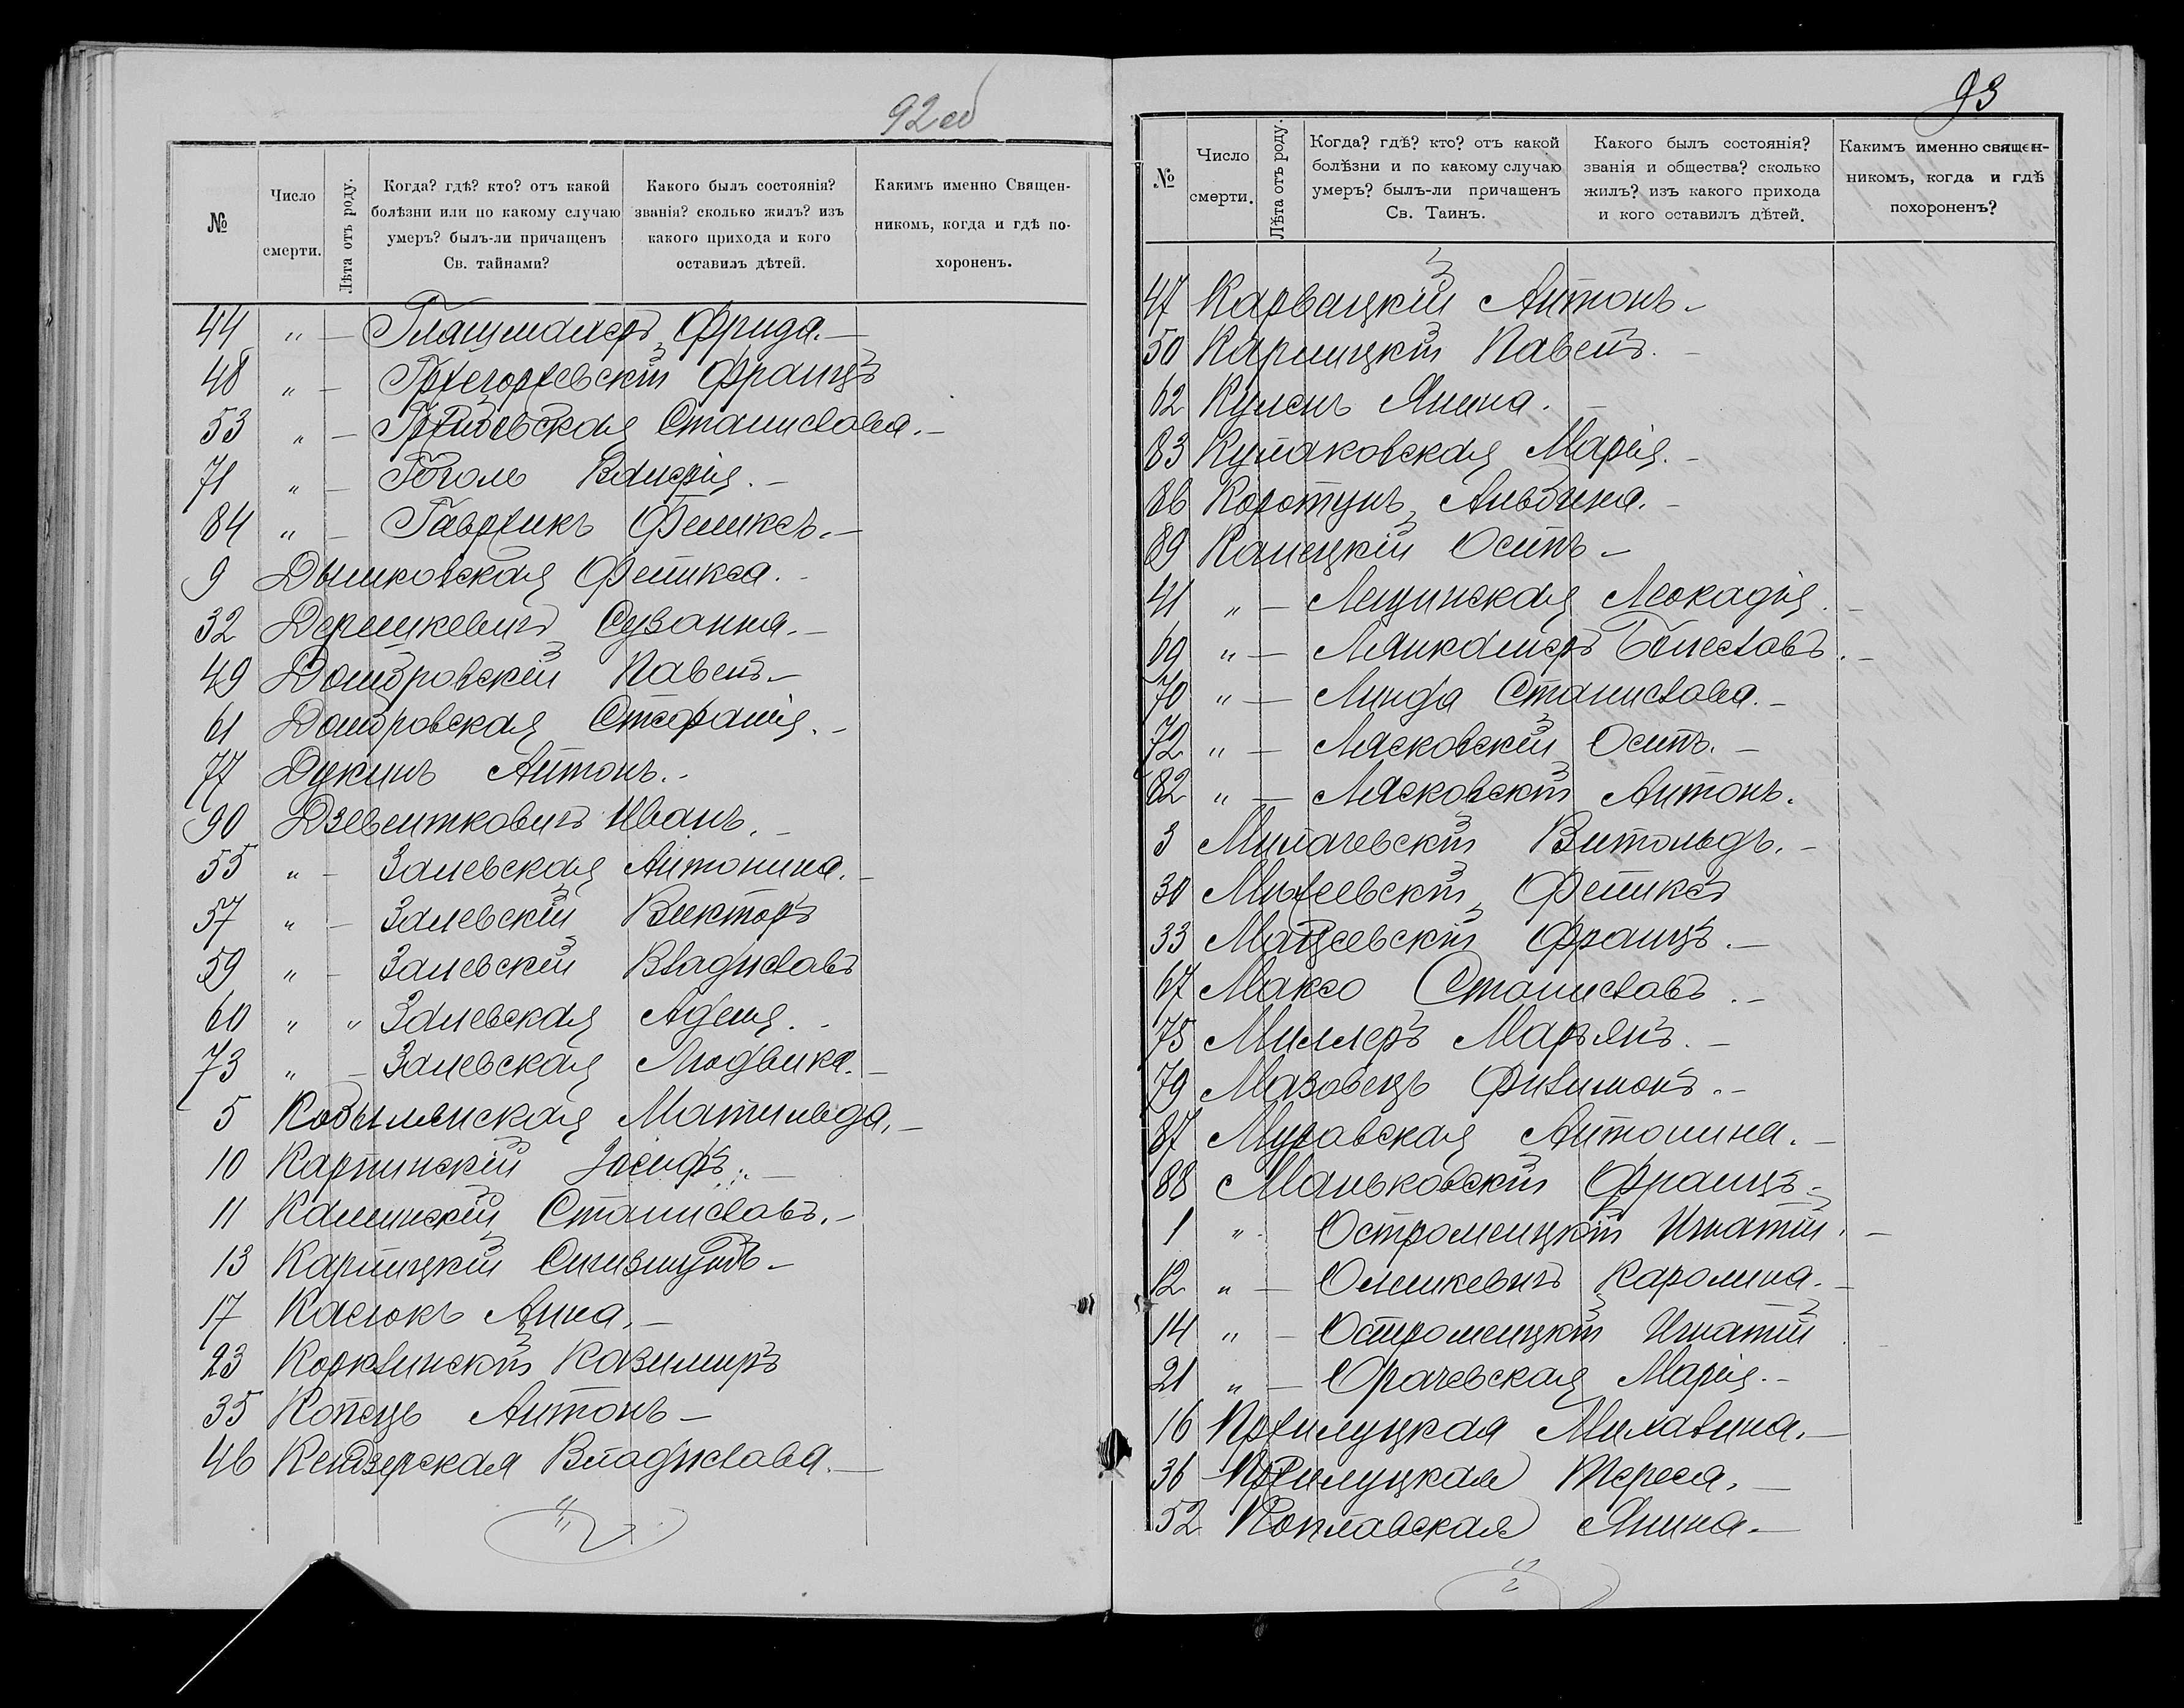 92 об
№
Число смерти.
Лѣта отъ роду.
Когда? гдѣ? кто? отъ какой болѣзни или по какому случаю умеръ? былъ-ли причащенъ Св. тайнами?
Какого былъ состоянія? званія? сколько жилъ? изъ какого прихода и кого оставилъ дѣтей.
Какимъ именно Священникомъ, когда и гдѣ похороненъ.
44 " — Глашмахеръ Фрида. —
48 " — Гржегоржевскій Францъ
53 " — Гржибовская Станислава. —
71 " — Гоголь Валерія. —
84 " — Гавржикъ Феликсъ. —
9 Дымковская Феликса. -
32 Дермкевичъ Сузанна. —
49 Домбровскій Павелъ —
61 Домбровская Стефанія. -
77 Дукинъ Антонъ. -
90 Дзевентковичъ Иванъ. —
55 " - Залевская Антонина. —
57 " — Залевскій Викторъ
59 " - Залевскій Владиславъ
60 " " Залевская Аделя. -
73 " — Залевская Людвика. —
5 Кобылянская Матильда, —
10 Карпинскій Іосифъ. —
11 Калинскій Станиславъ. —
13 Карпицкій Сигизмундъ —
17 Касюкъ Анна, —
23 Корклинскій Казимиръ
35 Копецъ Антонъ —
46 Кендзерская Владислава. —
93
№
Число смерти.
Лѣта отъ роду.
Когда? гдѣ? кто? отъ какой болѣзни и по какому случаю умеръ? былъ-ли причащенъ Св. Таинъ.
Какого былъ состоянія? званія и общества? сколько жилъ? изъ какого прихода и кого оставилъ дѣтей.
Какимъ именно священникомъ, когда и гдѣ похороненъ?
47 Карвацкій Антонъ -
50 Карпицкій Павелъ. -
62 Кулешъ Янина. —
83 Кулаковская Марія. -
86 Коротунъ Альбина. -
89 Калецкій Осипъ —
41 " — Лещинская Леокадія. —
69 " — Лянкамеръ Болеславъ. —
70 " — Линда Станислава. —
72 " — Лясковскій Осипъ. —
82 " — Лясковскій Антонъ.
3 Милачевскій Витольдъ. -
30 Михеевскій Феликсъ
33 Мацеевскій Францъ. —
67 Максо Станиславъ. -
75 Миллеръ Марьянъ. -
79 Мазовецъ Филимонъ. -
87 Муравская Антонина. —
88 Маньковскій Францъ -
1 " - Остромецкій Игнатій. —
12 " — Олешкевичъ Каролина. —
14 " — Остромецкій Игнатій
21 " — Орачевская Марія. -
16 Пржилуцкая Михалина. —
36 Пржилуцкая Тереса. —
52 Поплавская Янина —